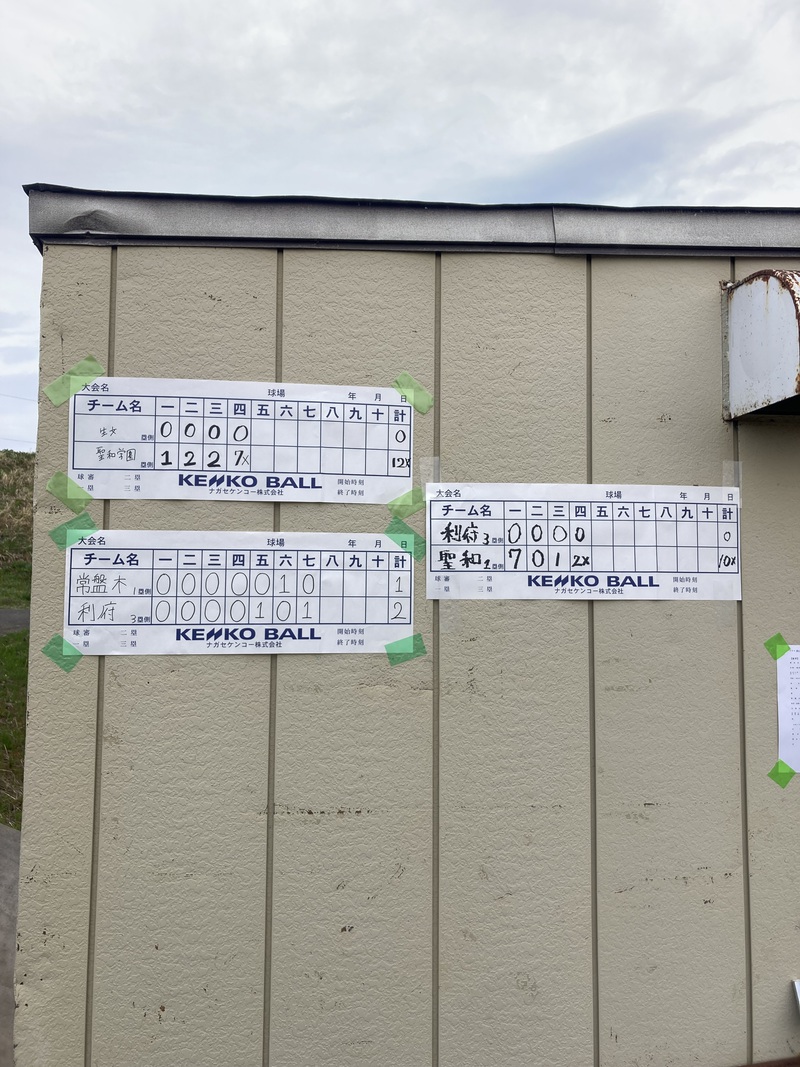 大会名 球場 年 月 日
チーム名 一 二 三 四 五 六 七 八 九 十 計
生文 塁側 0 0 0 0 0
聖和学園 塁側 1 2 2 7x 12x
球審 二塁 KENKO BALL 開始時刻
ナガセケンコー株式会社 終了時刻
大会名 球場 年 月 日
チーム名 一 二 三 四 五 六 七 八 九 十 計
常盤木 1塁側 0 0 0 0 0 1 0 1
利府 3塁側 0 0 0 0 1 0 1 2
球審 二塁 KENKO BALL 開始時刻
一塁 三塁 ナガセケンコー株式会社 終了時刻
大会名 球場 年 月 日
チーム名 一 二 三 四 五 六 七 八 九 十 計
利府 3塁側 0 0 0 0 0
聖和 1塁側 7 0 1 2x 10x
球審 二塁 KENKO BALL 開始時刻
一塁 三塁 ナガセケンコー株式会社 終了時刻